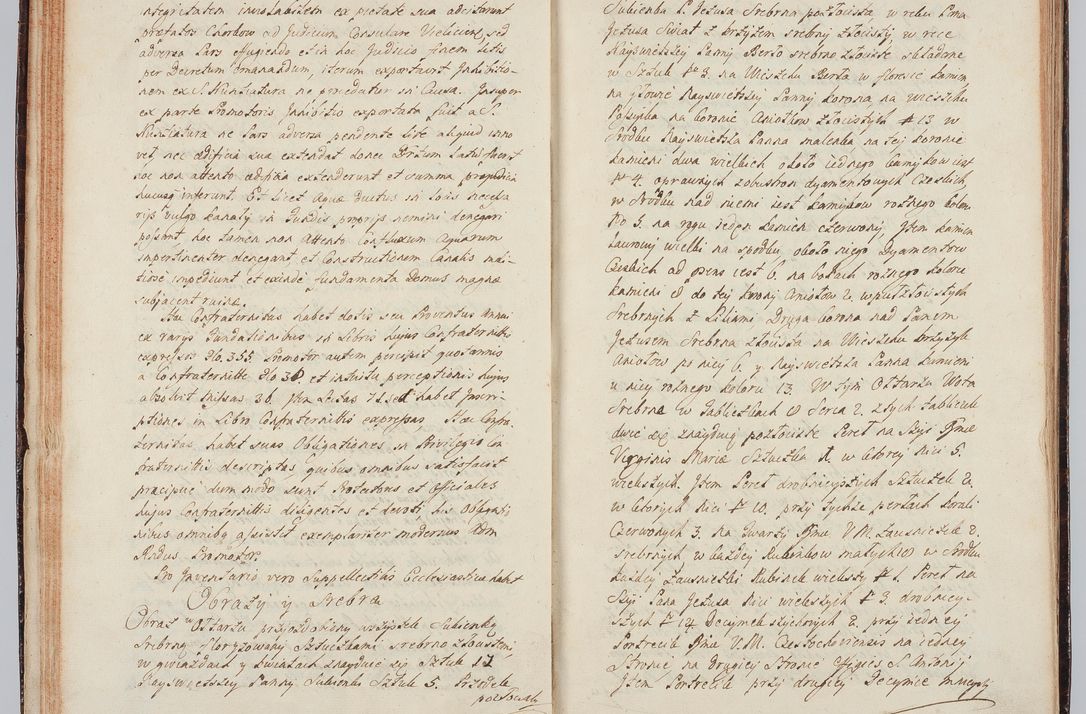 integritatem inviolabilem ex pietate sua adciterunt
prætates Chardow ad Judicium Consulare Vielicien, sed
adversa Pars effugiendo et in hoc Judicio finem litis
per Decretum emanandum, iterum exportavit Inhibitio-
nem ex S. Nunciatura ne procedatur in Causa. Insuper
ex parte Promotoris Inhibitio exportata fuit a S.
Nunciatura ne Pars adversa pendente lite aliquid inno
vet, nec ædificia sua extendat donec Dttum satisfecerit
hoc non attento ædificia extenderunt et summa præjudicia
hucusq inferunt. Et licet Aquæ ductus in locis necessa
rijs vulgo kanały in fundis proprijs nemini denegari
possunt, hoc tamen non attento Confluxum aquarum
impertinenter denegant, et Constructionem Canalis
impediunt et exinde fundamenta Domus magnæ
subjacent ruinæ.
Hæc Confraternitas habet dotis seu Proventus annui
ex varys Fundationibus in Libris hujus Confraternittis
expressis fl. 355. Promotor autem percipit quotannis
a Confraternitte flo 30 et intuitu perceptionis hujus
absolvit Missas 36. Item Missas 72. habet
ptiones in Libro Confraternittis expressas. Hæc Confra-
ternitas habet suas Obligationes in Privilegio Con
fraternittis descriptas, quibus omnibus satisfacit
præcipue dum modo sunt Protectores et Officiales
hujus Confraternittis diligentes et devoti, his obligatio
nibus omnibq assistit exemplariter modernus Adm
Rndus Promotor.
Pro Inventario vero Suppellectilis Ecclesiasticæ habet
Obrazy y Srebra
Obraz w Ołtarzu przyozdobiony wszystek Sukienką
Srebrną floryzowaną Sztuczkami srebrno złocistemi
w gwiazdach y kwiatach znayduie się Sztuk 12
Nayswietszey Panny Sukienka Sztuk 5.
pozłocista
Sukienka P. Jezusa Srebrna pozłocista, w ręku Pana
Jezusa Swiat z krzyżem srebrny złocisty w ręce
Nayswietszey Panny Berło srebrno złociste składane
w Sztuk No 3. na Wieszchu Berła w floresie kamien
na głowie Nayswietszey Panny korona na wieszchu
na koronie Aniołkow złocistych # 13 w
Srodku Nayswietsza Panna malenka na tey koronie
kamieni dwa wielkich około iednego kamykow iest
# 4. oprawnych dyamentowych Czeskich
w Srodku nad niemi iest kamykow roznego kolon
No 5. na rogu ieden kamien czerwony Item kamien
Laurowy wielki na spodku około niego Dyamentow
Czeskich ad opens iest 6. na bokach roznego koloru
kamieni 8 do tey korony Aniołow 2. złocistych
Srebrnych z Liliami Druga korona nad Panem
Jezusem Srebrna złocista na Wieszchu krzyżyk
Aniołow po niey 6. y Nayswietsza Panna kamieni
u niey roznego koloru 13. W tym Ołtarzu Wota
Srebrne w Tabliczkach 8 Serca 2. z tych tabliczek
dwie się znayduią pozłociste Pereł na Szyi Bmæ
Virginis Mariæ Sztuczka 1. w ktorey Nici 5.
wielszych. Item Pereł drobnieyszych Sztuczek 2.
w ktorych Nici # 10. przy tychze perłach korali
Czerwonych 3. na twarzy Bmæ V.M. Zausniczek 2.
srebrnych w każdey Rubinkow małych 10 w Srodku
każdey Zausniczki Rubinek wielszy # 1. Pereł na
Szyi Pana Jezusa Nici wielszych # 3. drobniey-
szych # 14 Decymek szychowych 2. przy iedney
Portrecik Bmæ V.M. Czestochoviensis na iedney
Stronie na Drugiey Stronie Effigies S. Antonij
Item Portrecik przy drugiey Decymce